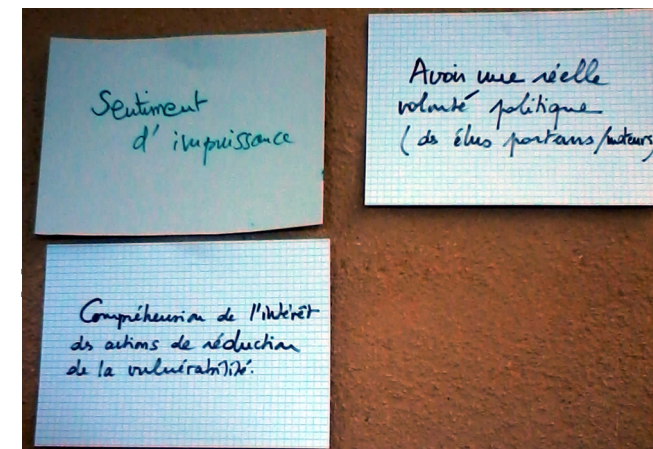 Sentiment
d'impuissance
Avoir une réelle
volonté politique
(ds élus portans/moteurs
Compréhension de l'intérêt
ds actions de réduction
de la vulnérabilité.